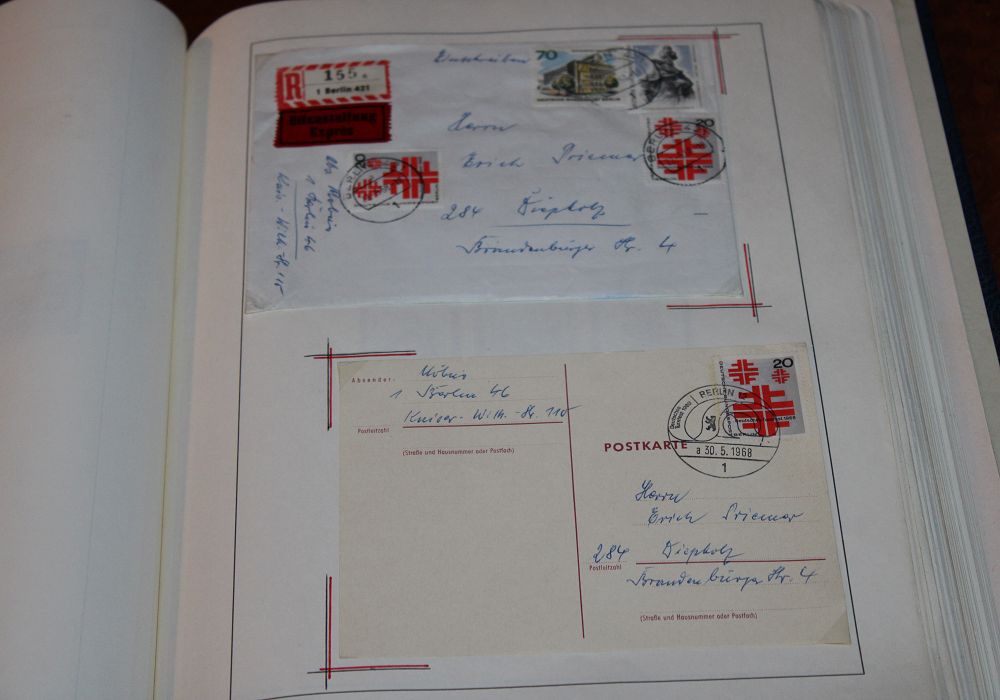 R 155 a
1 Berlin 421
Eilzustellung
Exprès
Einschreiben
70
20
20
BERLIN
BERLIN
Herrn
Erich Priemer
284 Diepholz
Brandenburger Str. 4
Abs. Möbus
1 Berlin 46
Kais.-Wilh.-Str. 115
Absender: Möbus
1 Berlin 46
Kaiser-Wilh.-Str. 115
Postleitzahl
(Straße und Hausnummer oder Postfach)
20
BERLIN
a 30.5.1968
1
POSTKARTE
Herrn
Erich Priemer
284 Diepholz
Postleitzahl
Brandenburger Str. 4
(Straße und Hausnummer oder Postfach)